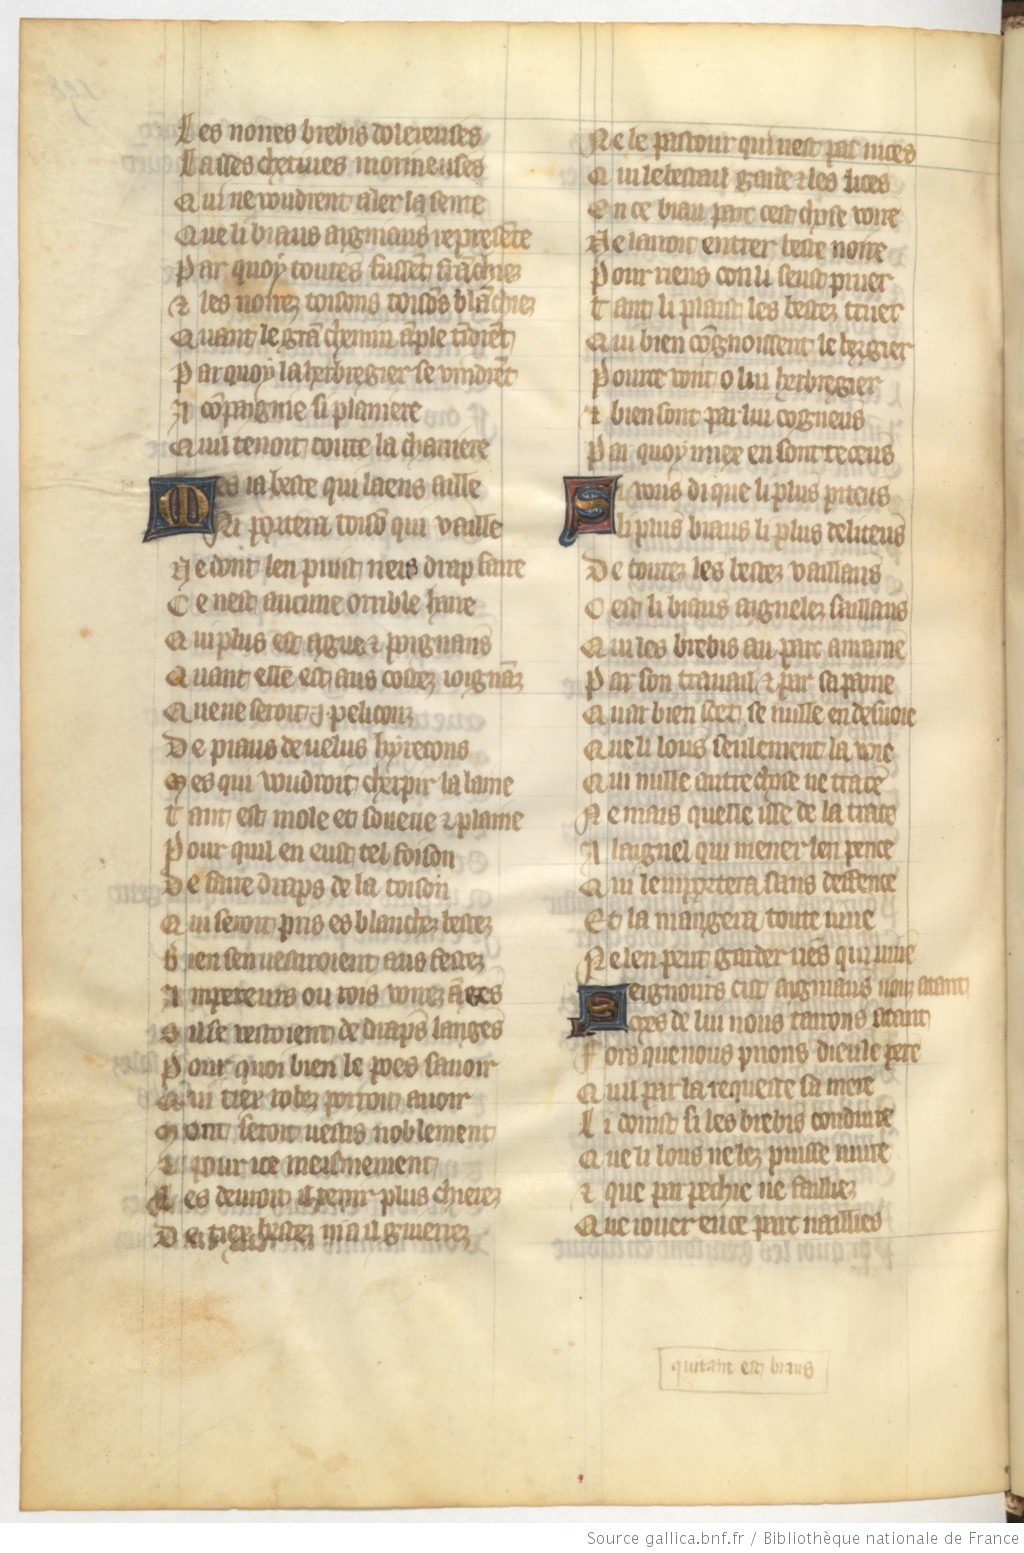 Les noires brebis dolereuses
Lasses chetives mornieuses
Qui ne voudrent aler la sente
Que li biaus aigniaus represēte
Par quoy toutes fussēt frāchiez
⁊ les noirez toisons toisōs blāchiez
Quant le grāt chemin ample tīdrēt
Par quoy la herbregier se vindrēt
A cōpaignie si planiere
Quil tenoit toute la charriere
Mes ia beste qui laens aille
Ni portera toisō qui vaille
Ne dont len puist neis drap faire
Ce nest aucune orrible haire
Qui plus est ague ⁊ poignans
Quant elle est aus costez ioignās
Que ne seroit .j. peliconz
De piaus de velus hyrecons
Mes qui voudroit cherpir la laine
Tant est mole et soueue ⁊ plaine
Pour quil en eust tel foison
De faire draps de la toison
Qui seroit pris es blanchez bestez
Bien sen vestiroient aus festez
Empereurs ou rois voire āges
Sil se vestoient de draps langes
Pour quoi bien le poes savoir
Qui tiex robez porroit avoir
Mont seroit vestis noblement
⁊ pour ice meismement
Les devroit il tenir plus chierez
De tiex bestez ni a il guierez
Ne le pastour qui nest pas nices
Qui le bestail garde ⁊ les lices
En ce biau parc cest chose voire
Ne lairoit entrer beste noire
Pour riens con li seust prier
Tant li plaist les bestez trier
Qui bien cōgnoissent le bergier
Pource vont o lui herbregier
⁊ bien sont par lui cogneus
Par quoy miex en sont receus
Si vous di que li plus piteus
Li plus biaus li plus deliteus
De toutez les bestez vaillans
Cest li biaus aignelez saillans
Qui les brebis au parc amaine
Par son travail ⁊ par sa paine
Quar bien scet se nulle en desvoie
Que li lous seulement la voie
Qui nulle autre chose ne trace
Ne mais quelle isse de la trace
A laignel qui mener len pence
Qui lemportera sans deffence
Et la mangera toute vive
Ne len peut garder riēs qui vive
Seignours cist aigniaus nous atant
Mes de lui nous tairons atant
Fors que nous prions dieu le pere
Quil par la requeste sa mere
Li doinst si les brebis conduire
Que li lous ne lez puisse nuire
⁊ que par pechie ne failliez
Que iouer en ce parc nailliés
qui tant est biaus
Source gallica.bnf.fr / Bibliothèque nationale de France